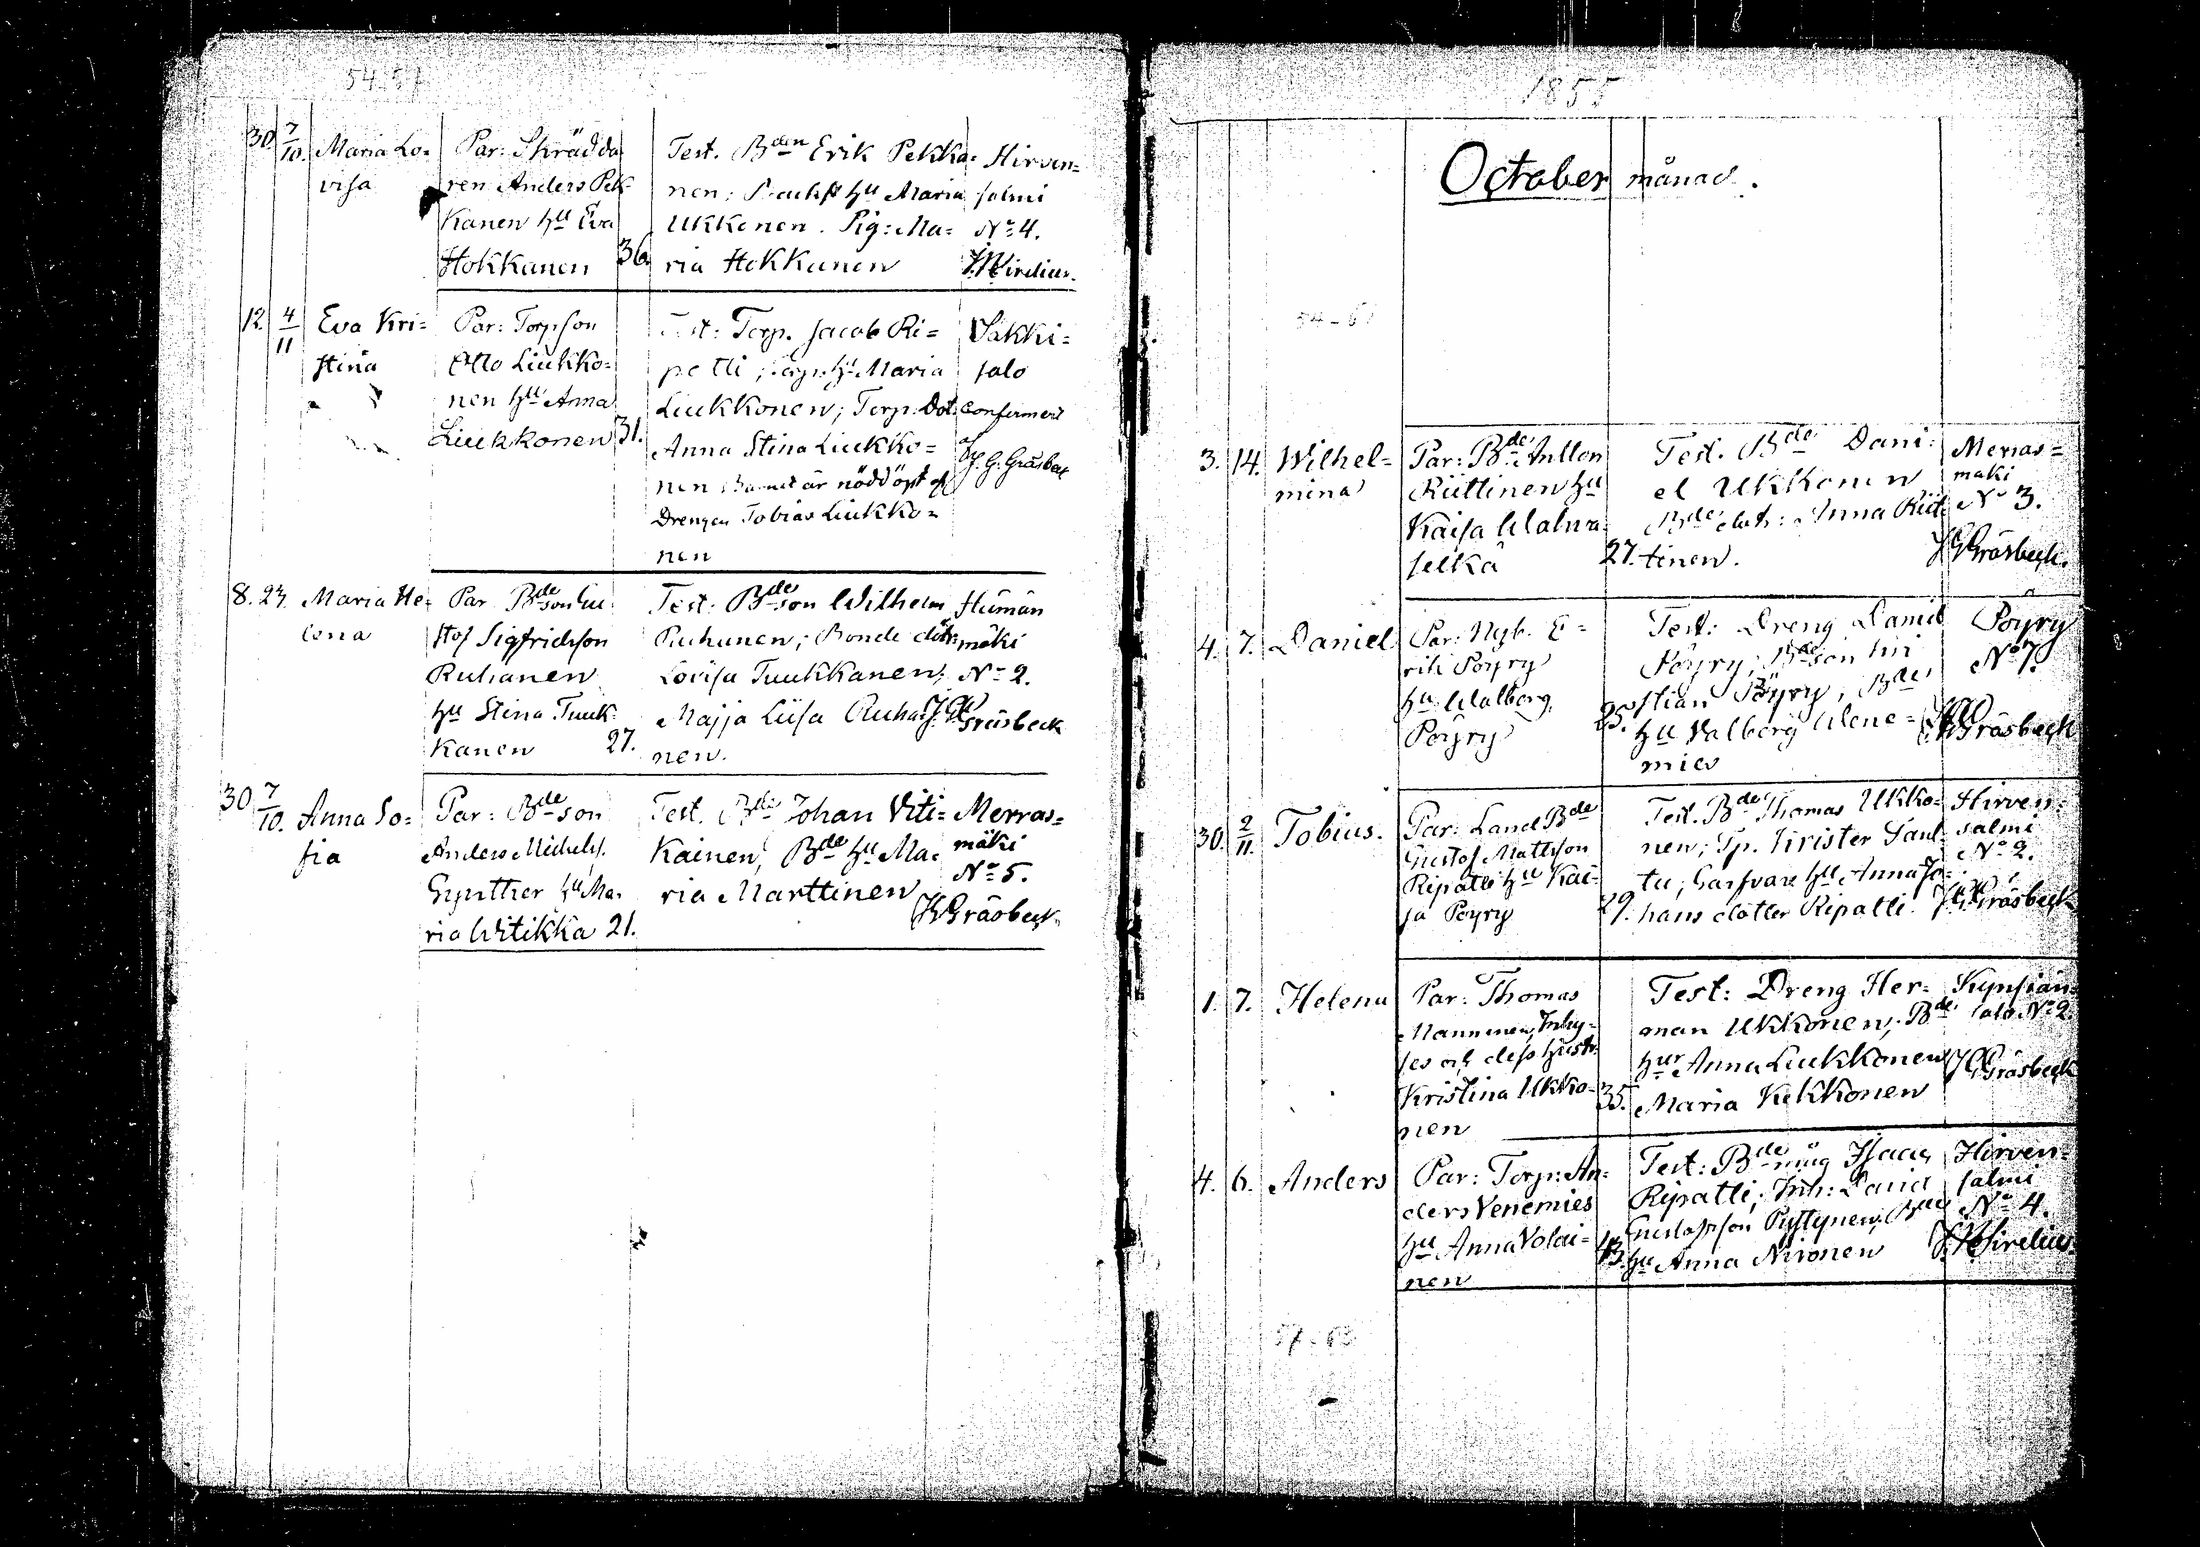 30 7/10. Maria Lo=
visa
Par: Skrädda
ren Anders Pek
kanen hu Eva
Hokkanen 36.
Test. Bden Erik Pekka=
nen; hu Maria
Ukkonen. Pig: Ma=
ria Hokkanen
Hirven=
salmi
No 4.
12. 4/11 Eva Kri=
stina
Par: Torpson
Otto Liukko=
nen hu Anna
Liukkonen 31.
Test: Torp. Jacob Ri=
patti; hu Maria
Liukkonen; Torp. Dot.
Anna Stina Liukko=
nen Barnet är nöddöpt af
Drengen Tobias Liukko=
nen
Vakki=
salo
J. G. Gräsbeck
8. 23. Maria He=
lena
Par Bdeson Gu=
stof Sigfridsson
Ruhanen
hu Stina Tuuk=
kanen 27.
Test: Bdeson Wilhelm
Ruhanen; Bonde dotr.
Lovisa Tuukkanen;
Majja Liisa Ruha=
nen.
mäki
No 2.
Gräsbeck
30 7/10. Anna So=
fia
Par: Bdeson
Anders Michels.
Gynther hu Ma=
ria Witikka 21.
Test. Bde Johan Viti=
kainen, Bde hu Ma=
ria Marttinen
Merras=
mäki
No 5.
JG Gräsbeck
1855
October månad.
3. 14. Wilhel=
mina
Par: Bde Anllon
Riittinen hu
Kaisa Walwa=
selkä 27.
Test. Bde Dani=
el Ukkonen
Bde dotr: Anna Riit=
tinen.
Merras=
mäki
No 3.
JG Gräsbeck.
4. 7. Daniel
Par: Nyb. E=
rik Pöyry
hu Walborg
Pöyry 25.
Test: Dreng David
Pöyry; Bdeson Kri
stian Pöyry, Bde
hu Valborg Wene=
mies
Pöyry
No 7.
Gräsbeck
30. 2/11. Tobias.
Par: Land Bde
Gustof Mattsson
Ripatti hu Kai=
sa Pöyry 29.
Test. Bde Thomas Ukko=
nen; Tp. Krister Paul=
tu; Garfvare hu Anna Jo=
hans dotter Ripatti.
Hirven=
salmi
No 2.
Gräsbeck
1. 7. Helena
Par: Thomas
Manninen, Inhy=
ses och dess hustr.
Kristina Ukko=
nen 35.
Test: Dreng Her=
man Ukkonen; Bde
hur Anna Liukkonen
Maria Kekkonen
No 2.
Gräsbeck
4. 6. Anders
Par: Torp: An=
ders Venemies
hu Anna Volai=
nen 43.
Test: Bde måg Isaac
Ripatti; Inh: David
Gustafsson Pyttynen; Bde
hu Anna Nironen
Hirven=
salmi
No 4.